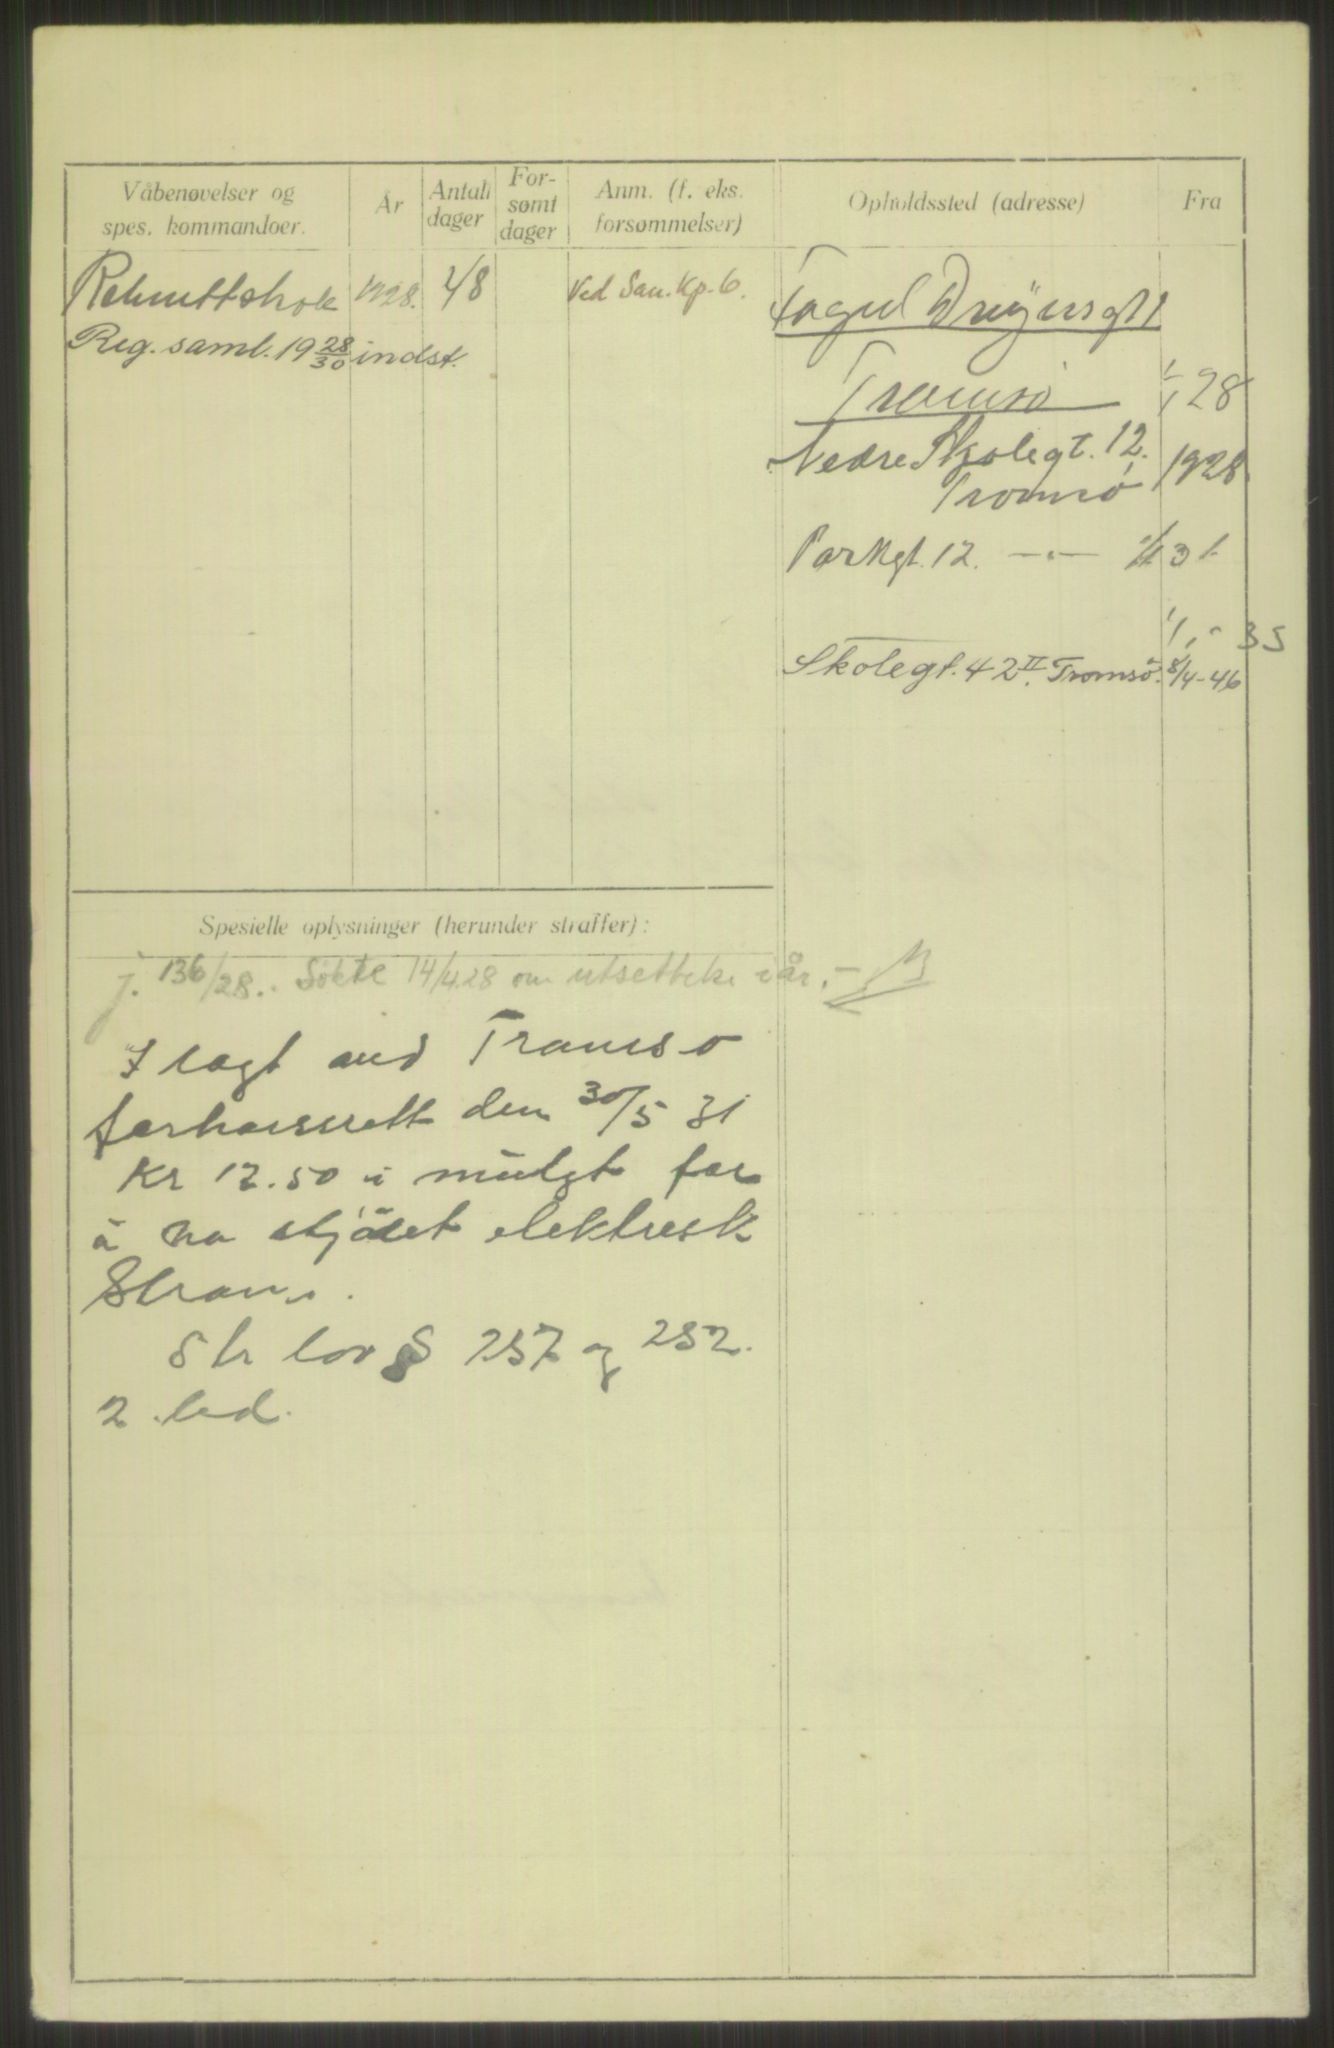 Våbenøvelser og
spes. kommandoer.
År
Antall
dager
For-
sømt
dager
Anm. (f. eks.
forsømmelser)
Opholdssted (adresse)
Fra
Rekruttskole 1928. 48 Ved San. Kp. 6.
Reg. saml. 19 28/30 indst.
Tromsø 1/1 28
Nedre Skolegt. 12.
Tromsø 1928.
Parkgt. 12. —„— 31
1/1 - 35
Skolegt. 42 II. Tromsø. 8/4-46
Spesielle oplysninger (herunder straffer):
j. 136/28. Søkte 14/4 28 om utsettelse i år. -
Ilagt ved Tromsø
forhørsrett den 30/5 31
Kr 12.50 i mulgt for
å ha stjålet elektrisk
Strøm.
Str lov § 257 og 252.
2. led.